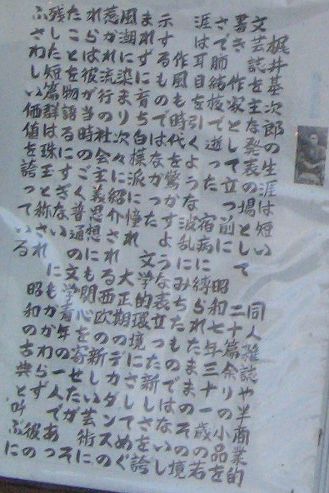 梶井基次郎の生涯は短い
文芸誌を主な発表の場として 同人雑誌や半商業的
書き 作家として立つ前に 二十篇余りの小品を
さで肺結核で逝った 昭和七年三十一歳の若
涯は耳目を引くような 宿痾に縛られたままその生
作風も時代を驚かすような波乱にみちたものではないし
示するものでもない 表立った新しさを誇
まれずに育ち 白樺派に憧れ 文学的環境に
風潮に染まり 次々に紹介され 大正期のデカダンスの
惹かれ 流行の社会主義思想にも関心を寄せたが そ
れらは彼が当時のごく普通の文学青年の一人であっ
たことを物語るにすぎない にもかかわらず 彼の
残した短篇群は珠玉と称され 昭和の古典と呼ぶに
ふさわしい価値を誇っている